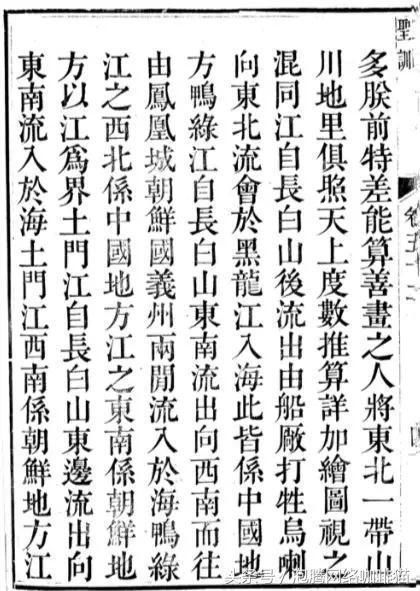 聖訓
多朕前特差能算善畫之人將東北一帶山
川地里俱照天上度數推算詳加繪圖視之
混同江自長白山後流出由船厰打牲烏喇
向東北流會於黑龍江入海此皆係中國地
方鴨綠江自長白山東南流出向西南而往
由鳳凰城朝鮮國義州兩閒流入於海鴨綠
江之西北係中國地方江之東南係朝鮮地
方以江爲界土門江自長白山東邊流出向
東南流入於海土門江西南係朝鮮地方江
头条号 /